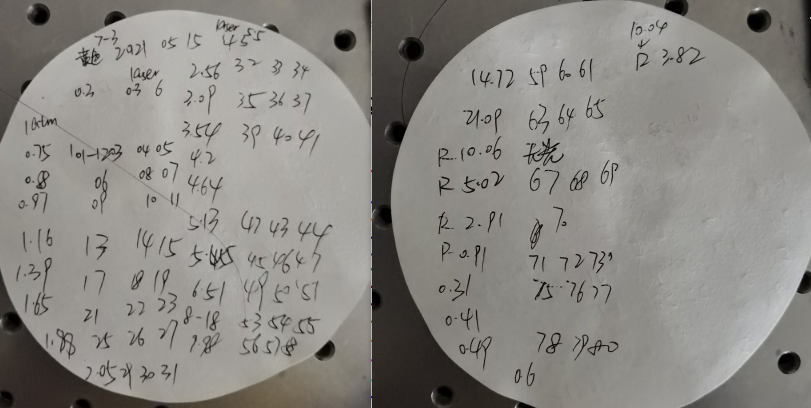 7-3
2021 05 15 laser 4555
laser 2.56 32 33 34
0.3 03 6 3.09 35 36 37
1atm 3.54 39 40 41
0.75 101-1203 04 05 4.2
0.8 06 08 07 4.64
0.97 09 10 11
5.13 42 43 44
1.16 13 14 15 45 46 47
1.39 17 18 19 6.51 49 50 51
1.65 21 22 23 8-18 53 54 55
1.98 25 26 27 7.98 56 57 58
2.05 29 30 31
10.04
R 3.82
14.72 59 60 61
21.09 63 64 65
R 10.06
R 5.02 67 68 69
R 2.91 70
R 0.91 71 72 73
0.31 75 76 77
0.41
0.49 78 79 80
06